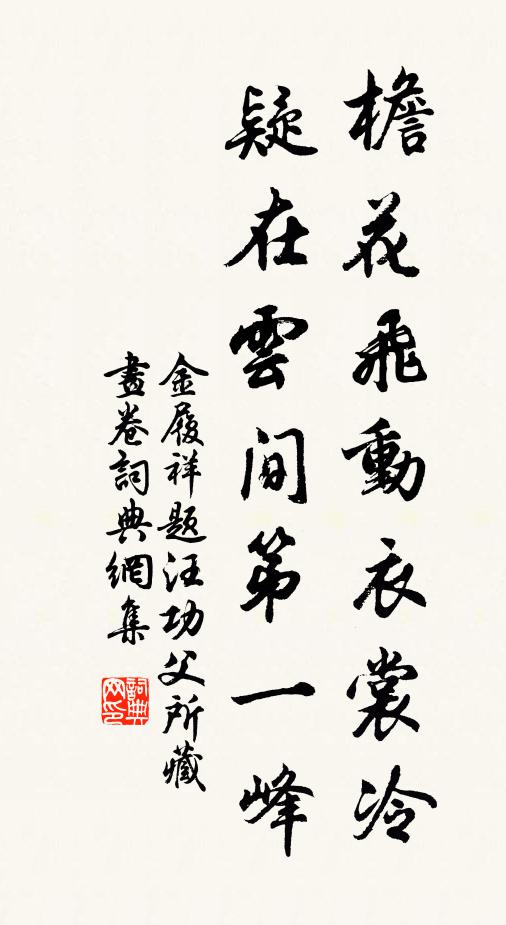 檐花飛動衣裳冷
疑在雲間第一峰
金履祥題汪功父所藏
畫卷詞典網集
詞典網印